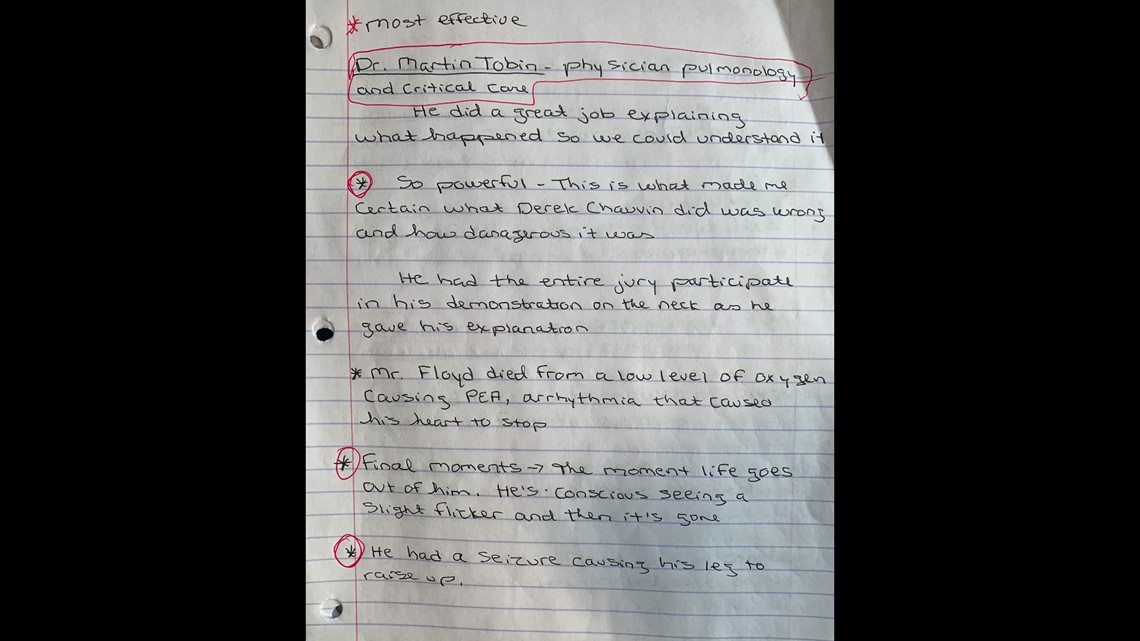 *most effective
Dr. Martin Tobin - physician pulmonology
and Critical Care
He did a great job explaining
what happened so we could understand it
* So powerful - This is what made me
Certain what Derek Chauvin did was wrong
and how danagerous it was
He had the entire jury participate
in his demonstration on the neck as he
gave his explanation
* Mr. Floyd died from a low level of oxygen
Causing PEA, arrhythmia that caused
his heart to stop
* Final moments → The moment life goes
out of him. He's conscious seeing a
slight flicker and then it's gone
* He had a seizure causing his leg to
raise up.